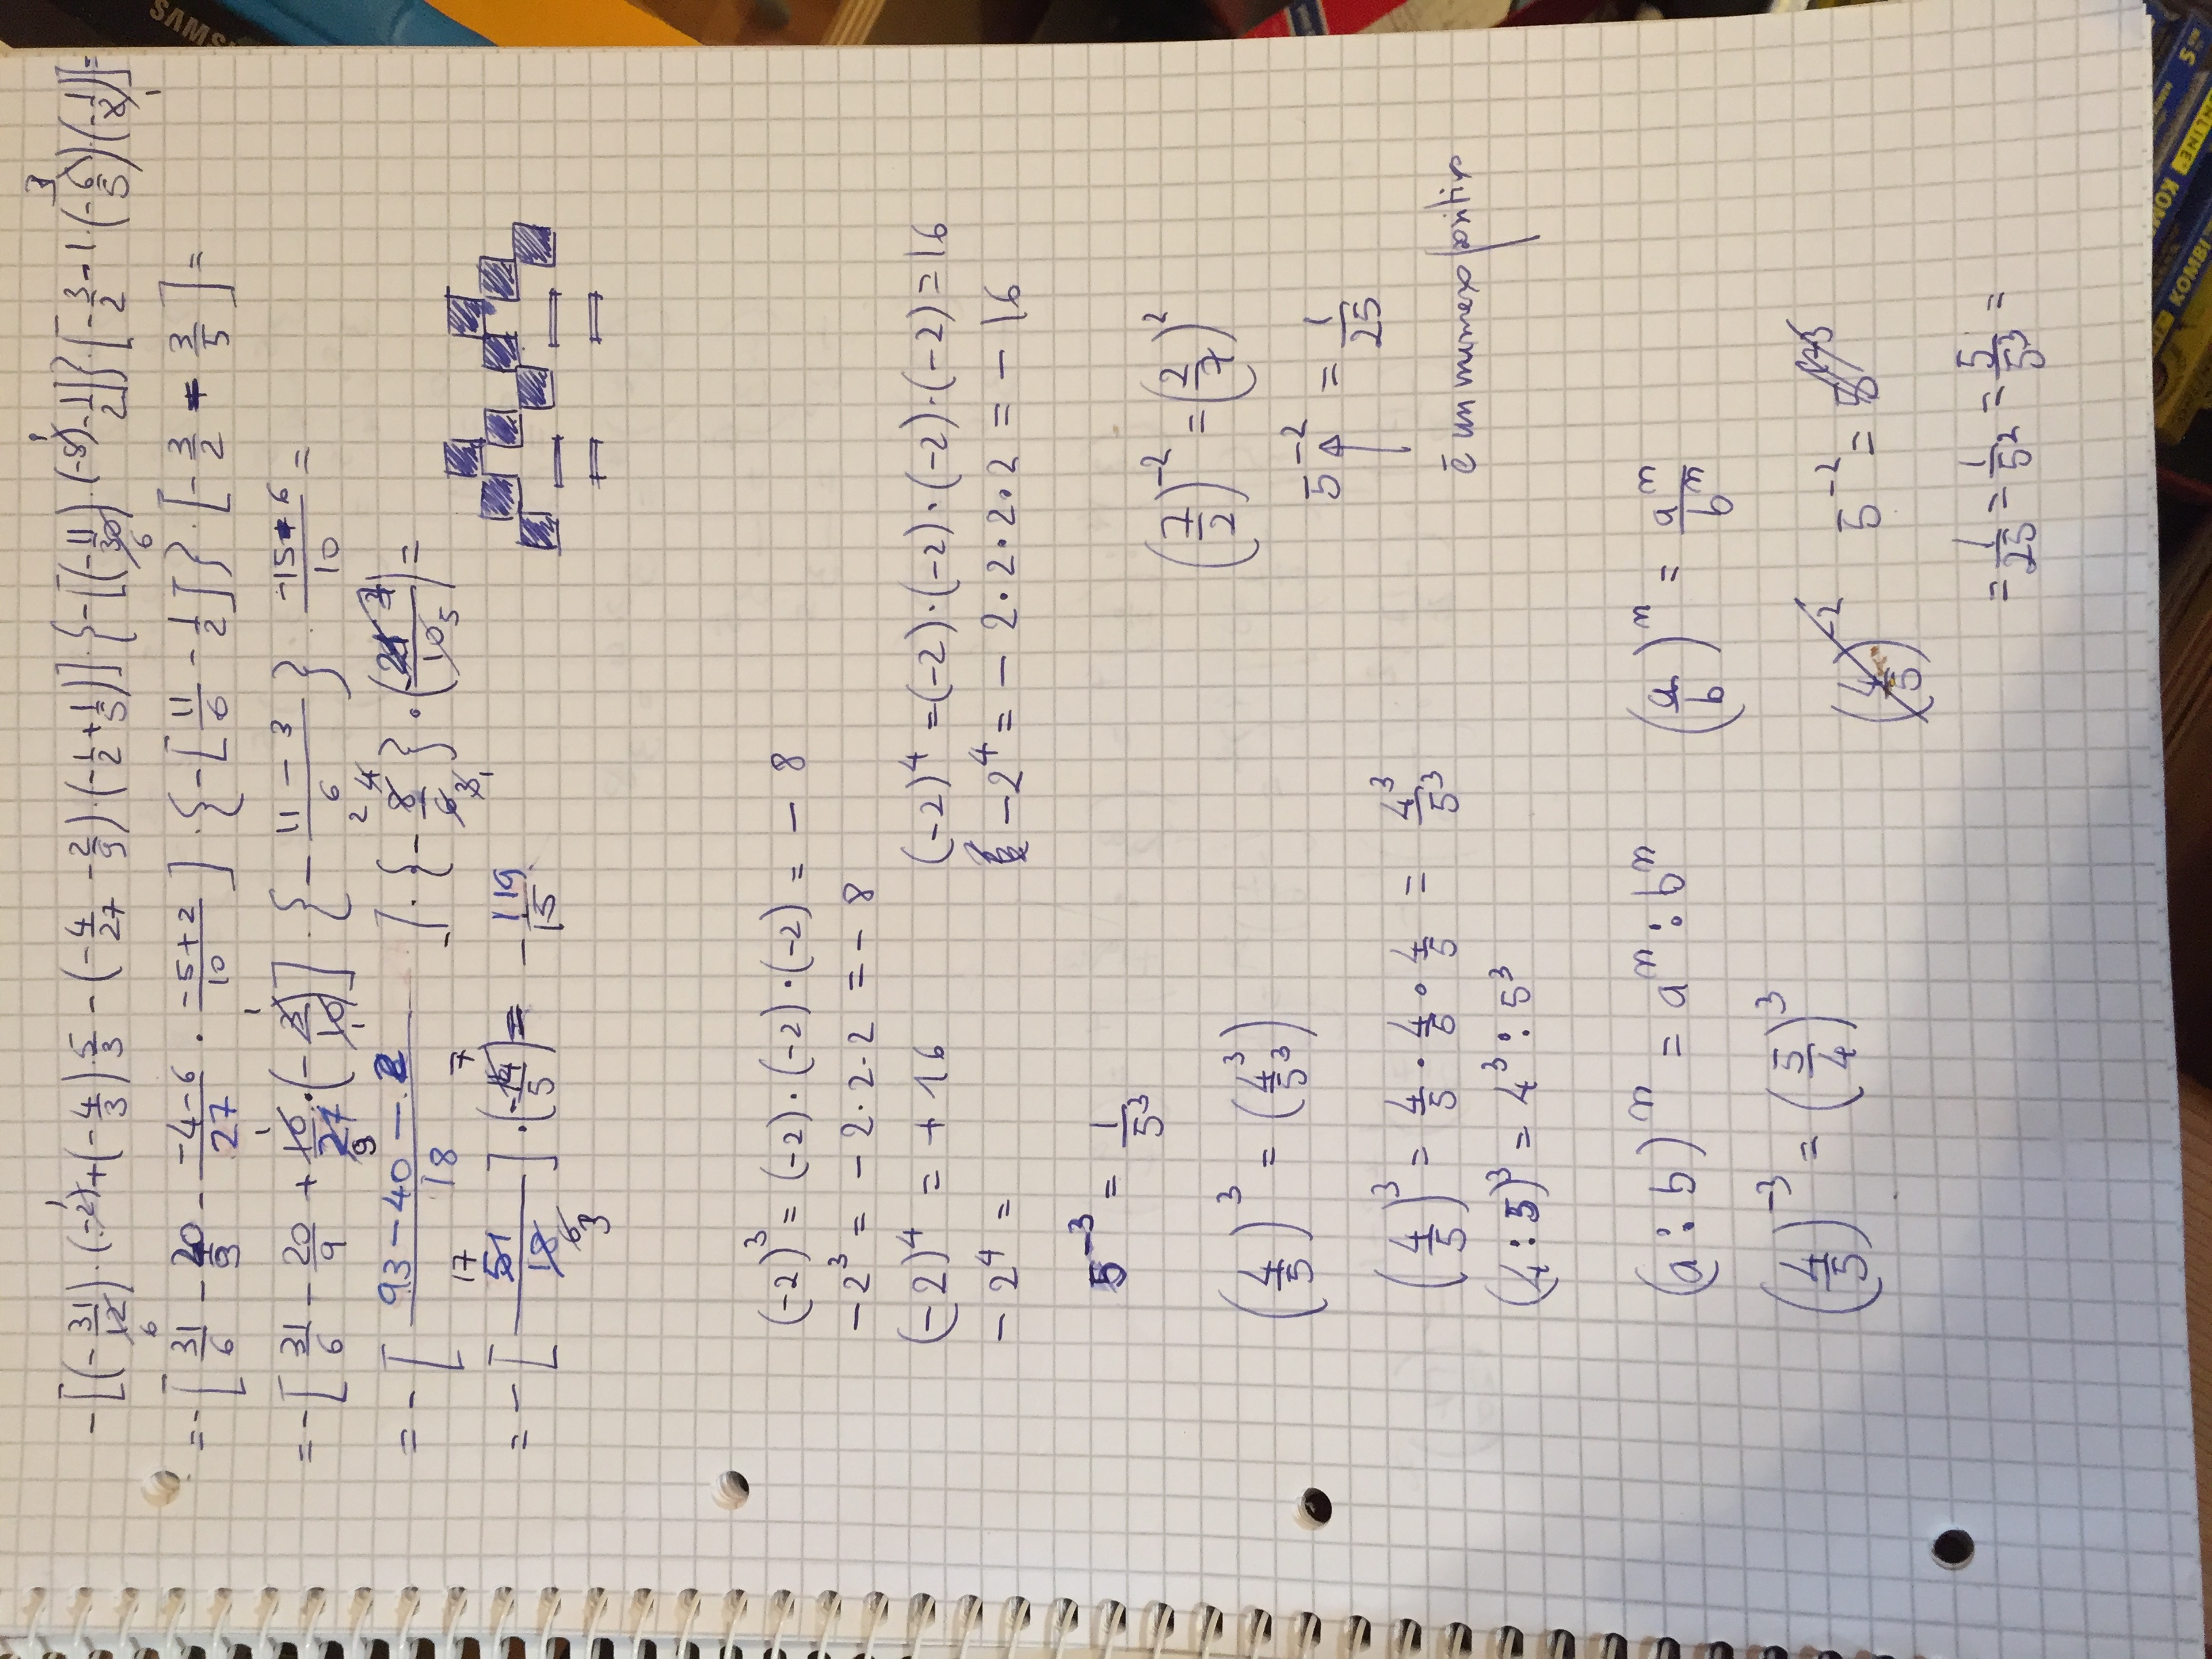 -[(-31/12)·(-2)+(-4/3)·5/3-(-4/27-2/9)·(-1/2+1/5)]·{-[(-11/30)·(-5)-1/2]}·[-3/2-1·(-6/5)·(-1/2)]=
=-[31/6-20/9-(-4-6)/27·(-5+2)/10]·{-[11/6-1/2]}·[-3/2 3/5]=
=-[31/6-20/9+10/27·(-3/10)]·{-(11-3)/6}·(-15 6)/10=
=-[(93-40-2)/18]·{-8/6}·(-21/10)=
=-[51/18]·(-14/5)= -119/15
(-2)³=(-2)·(-2)·(-2)=-8
-2³=-2·2·2=-8
(-2)⁴=+16
(-2)⁴=(-2)·(-2)·(-2)·(-2)=16
-2⁴=
-2⁴=-2·2·2·2=-16
5⁻³=1/5³
(7/2)⁻²=(2/7)²
(4/5)³=(4³/5³)
5⁻²=1/25
(4/5)³=4/5·4/5·4/5=4³/5³
è un numero positivo
(4:5)³=4³:5³
(a:b)ⁿ=aⁿ:bⁿ
(a/b)ⁿ=aⁿ/bⁿ
(4/5)⁻³=(5/4)³
(4/5)⁻²
5⁻²=
=1/25=1/5²=5/5³=
SAMS
KOMBI